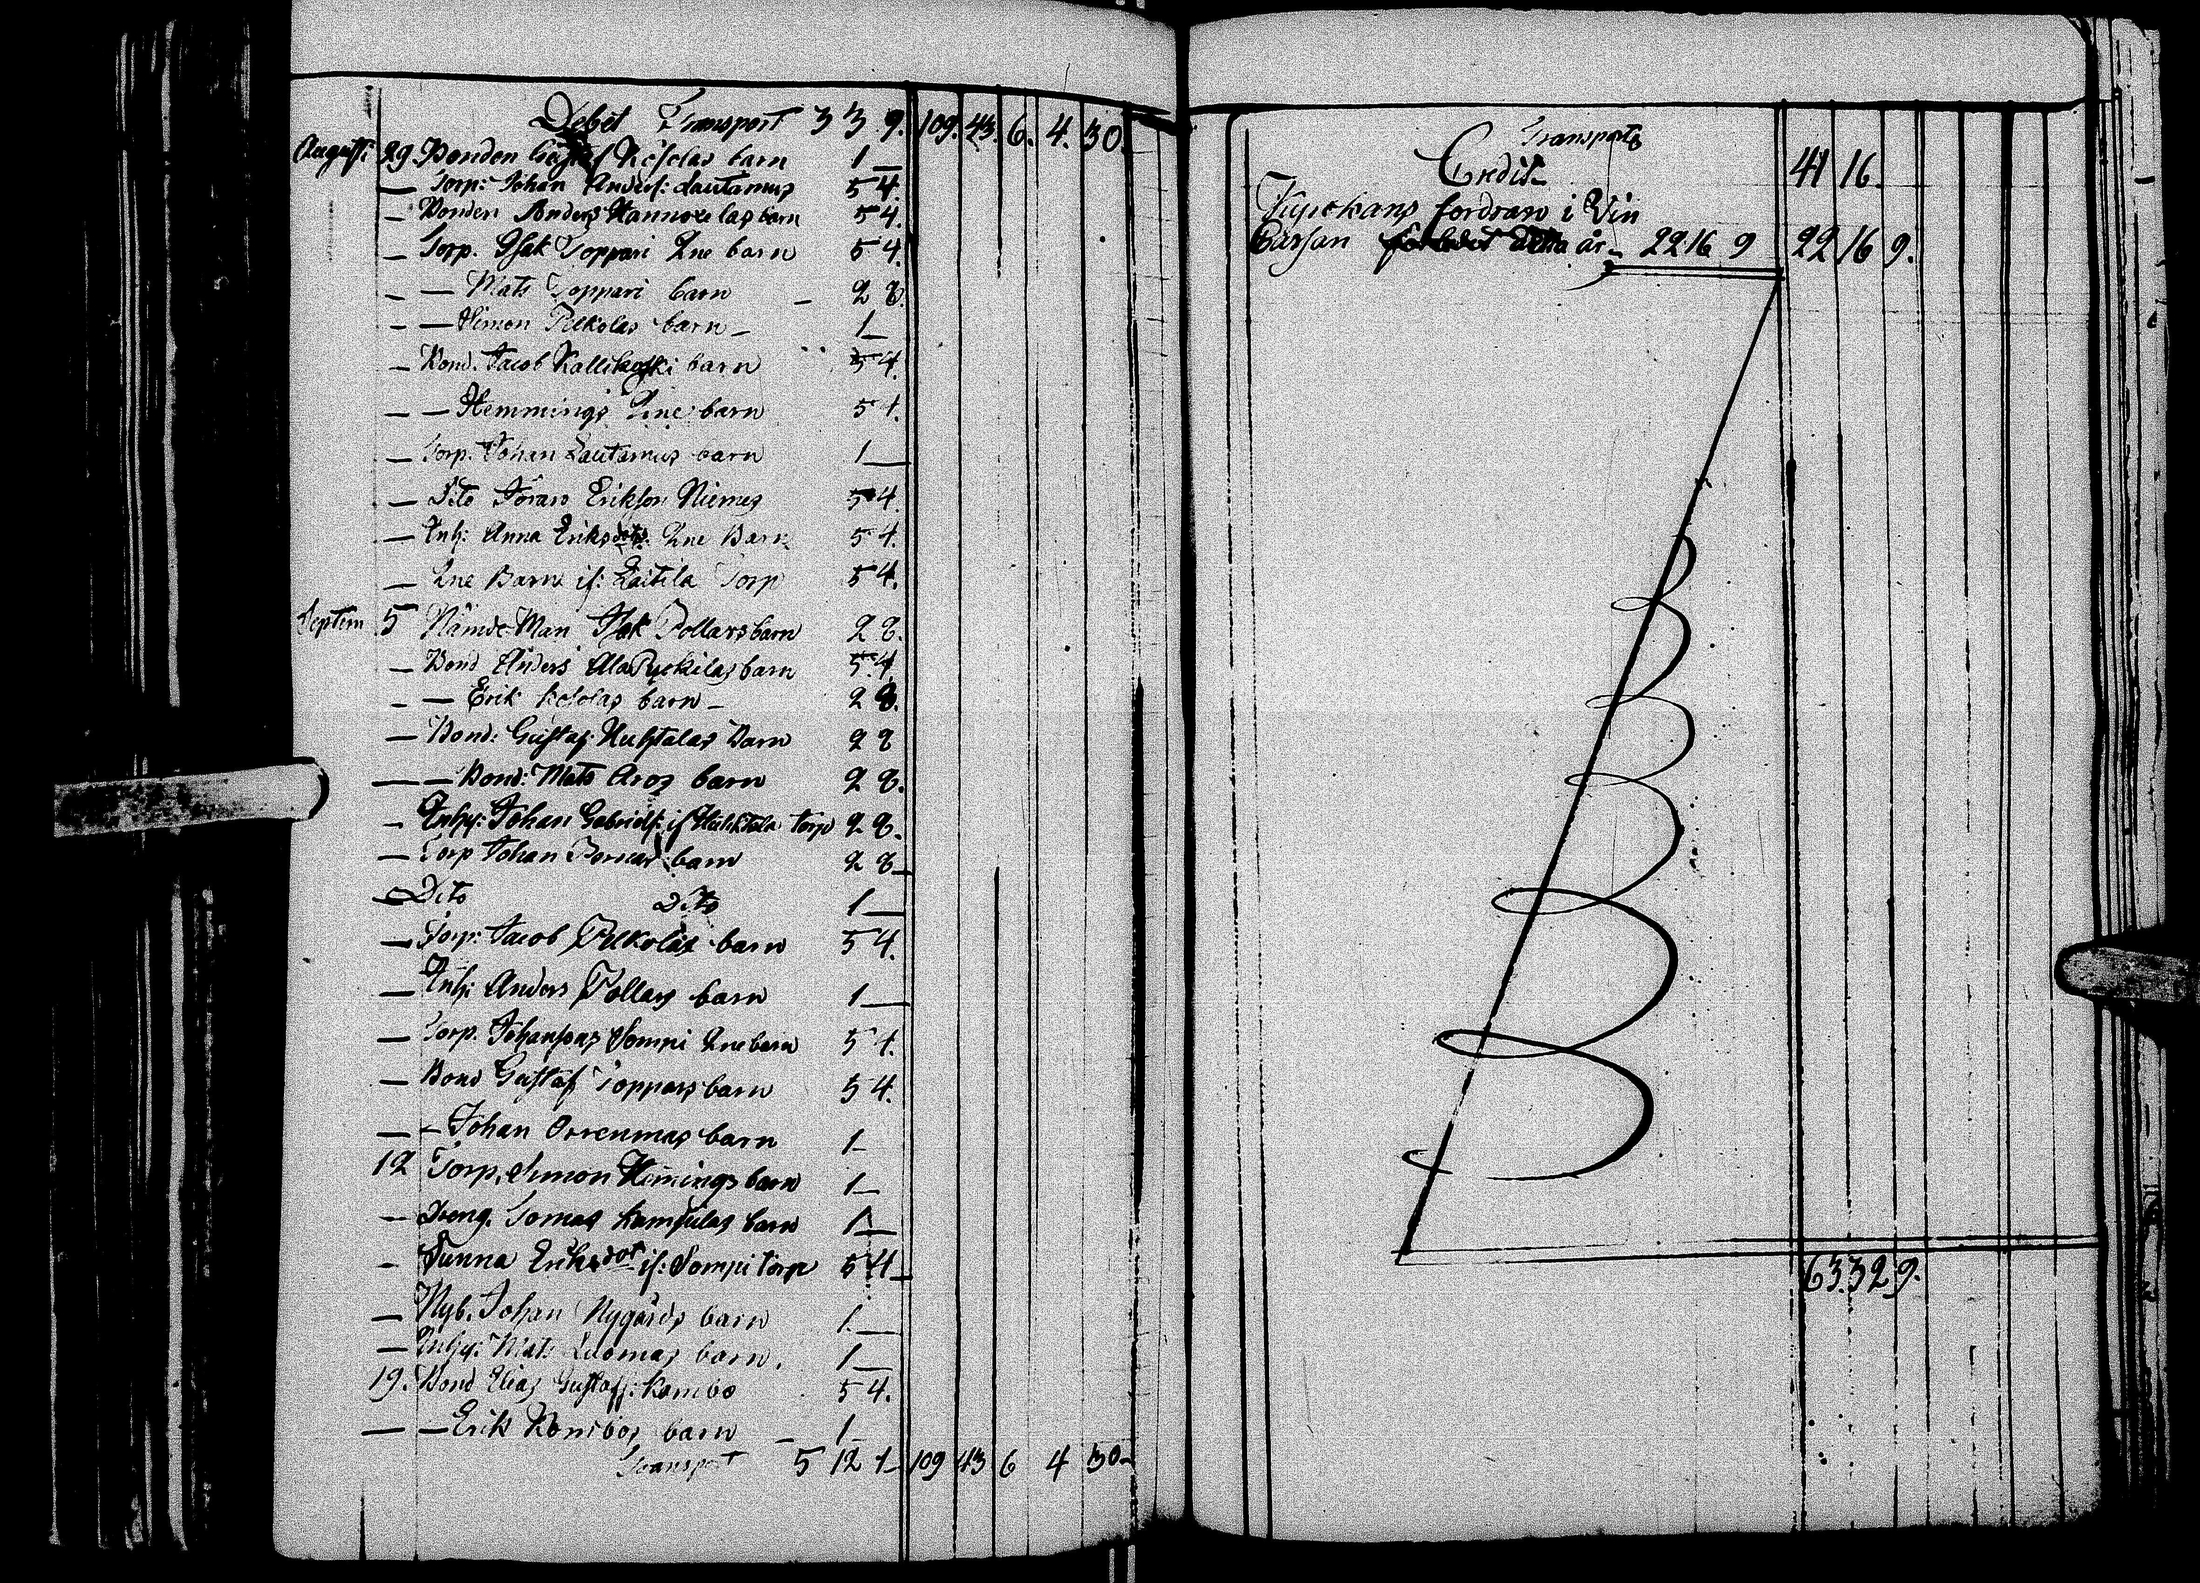 Debet Transport 3 3 9. 109. 43. 6. 4. 30.
Augusti 29 Bonden Gustaf barn 1 —
— Torp: Johan Andersf: Lautamus 5 4.
— Bonden Anders Hannoxelas barn 5 4.
— Torp. Isak Toppari 2ne barn 5 4.
— — Mats Toppari barn — 2 8.
— — Simon Pelkolas barn — 1 —
— Bond. Jacob Kallikoski barn 5 4.
— — Hemmings 2ne barn 5 4.
— Torp. Johan Lautamus barn 1 —
— Dito Jöran Erikson Niemes 5 4.
— Inh: Anna Eriksdotr. 2ne Barn 5 4.
— 2ne Barn if: Laitila Torp 5 4.
Septem 5 Nämde Man Isak Pollars barn 2 8.
— Bond Anders Ala barn 5 4.
— — Erik barn — 2 8.
— Bond: Gustaf Huhtalas Barn 2 8
— — Bond: Mats Aros barn 2 8.
— Inhy: Johan Gabrielf: if Huhktala torp 2 8.
— Torp Johan barn 2 8 —
— Dito Dito 1 —
— Torp: Jacob Pelkolas barn 5 4.
— Inh: Anders Pollars barn 1 —
— Torp. Johansons Sompi 2ne barn 5 4.
— Bond Gustaf Toppars barn 5 4.
— — Johan Orrenmas barn 1 —
12 Torp. Simon Hemings barn 1 —
— Dreng. Tomas barn 1 —
— Eriksdotr if: Sompi torp 5 4 —
— Nyb. Johan Nygårds barn 1 —
— Inhy: Mats Luomas barn. 1 —
19. Bond Elias Gustaff: Kambo 5 4.
— — Erik barn — 1 —
Transport 5 12 1 — 109 43 6 4 30 —
Transporte
Credit — 41 16.
Kyrckans fordran i Vin
Cassan detta år — 22 16 9 22 16 9.
63. 32 9.